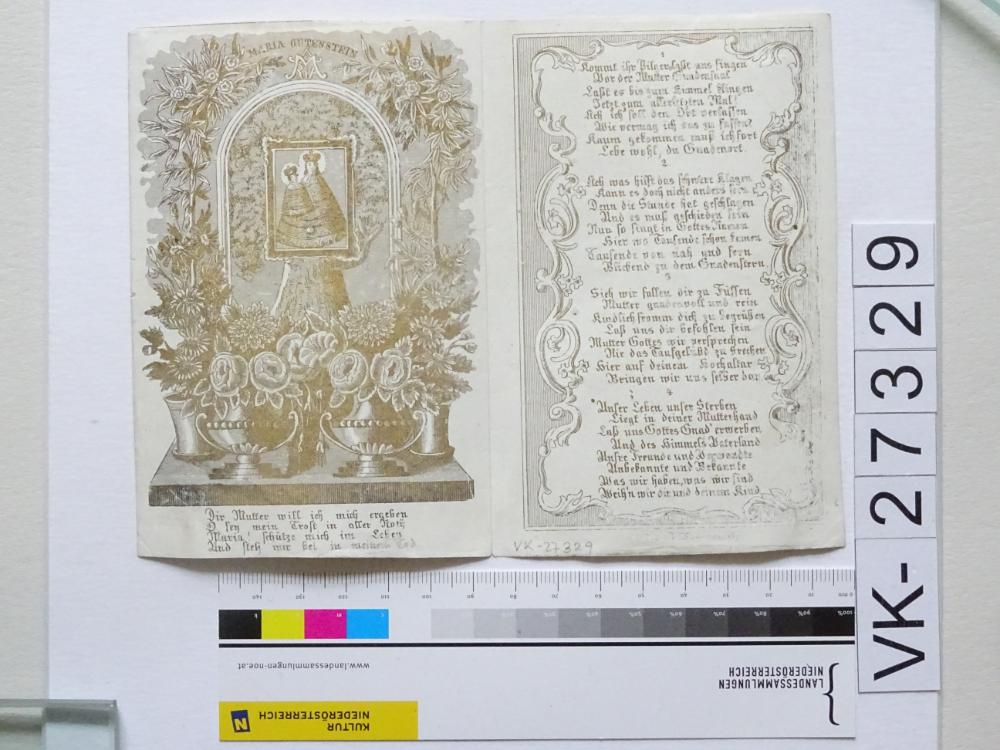 MARIA GUTENSTEIN
Dir Mutter will ich mich ergeben
O sey mein Trost in aller Noth
Maria! schütze mich im Leben
Und steh mir bei in meinem Tod
1
Kommt ihr Pilger laßt uns singen
Vor der Mutter Gnadensaal
Laßt es bis zum Himmel klingen
Jetzt zum allerletzten Mal!
Ach ich soll den Ort verlassen
Wie vermag ich das zu fassen?
Kaum gekommen muß ich fort
Lebe wohl, du Gnadenort.
2.
Ach was hilft das schwere Klagen
Kann es doch nicht anders sein
Denn die Stunde hat geschlagen
Und es muß geschieden sein
Nun so singt in Gottes Namen
Hier wo Tausende schon kamen
Tausende von nah und fern
Blickend zu dem Gnadenstern.
3
Sieh wir fallen dir zu Füssen
Mutter gnadenvoll und rein
Kindlichfromm dich zu begrüßen
Laß uns dir befohlen sein
Mutter Gottes wir versprechen
Nie das Taufgelübd zu brechen
Hier auf deinem Hochaltar
Bringen wir uns selber dar
4
Unser Leben unser Sterben
Liegt in deiner Mutterhand
Laß uns Gottes Gnad' erwerben
Und des Himmels Vaterland
Unsre Freunde und Verwandte
Unbekannte und Bekannte
Was wir haben, was wir sind
Weih'n wir dir und deinem Kind
VK-27329
VK-27329
www.landessammlungen-noe.at
LANDESSAMMLUNGEN
NIEDERÖSTERREICH
KULTUR
NIEDERÖSTERREICH
N